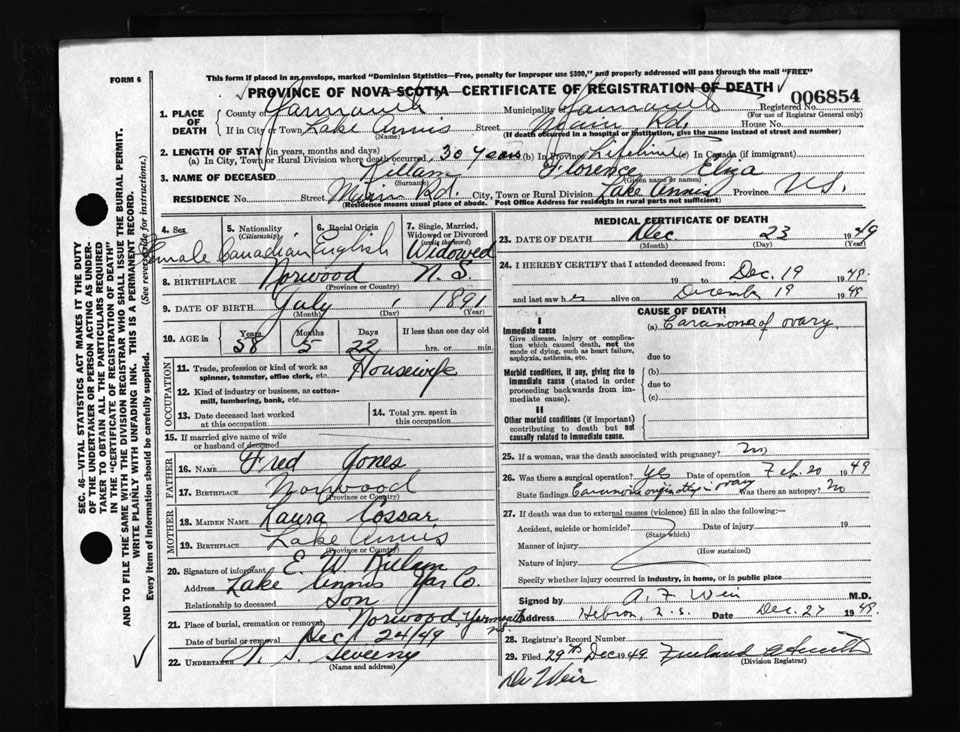 FORM 6
This form if placed in an envelope, marked "Dominion Statistics—Free, penalty for improper use $300," and properly addressed will pass through the mail "FREE"
PROVINCE OF NOVA SCOTIA—CERTIFICATE OF REGISTRATION OF DEATH
006854
1. PLACE OF DEATH
County of Yarmouth Municipality of Yarmouth Registered No.
(For use of Registrar General only)
If in City or Town Lake Annis Street Main Rd. House No.
(Name) (If death occurred in a hospital or institution, give the name instead of street and number)
2. LENGTH OF STAY (in years, months and days)
(a) In City, Town or Rural Division where death occurred 30 years (b) in Province Lifetime (c) In Canada (if immigrant)
3. NAME OF DECEASED Killam Florence Eliza
(Surname) (Given name or names)
RESIDENCE No. Street Main Rd. City, Town or Rural Division Lake Annis Province N.S.
(Residence means usual place of abode. Post Office Address for residents in rural parts not sufficient)
4. Sex Female
5. Nationality (Citizenship) Canadian
6. Racial Origin English
7. Single, Married, Widowed or Divorced (write the word) Widowed
8. BIRTHPLACE Norwood N.S.
(Province or Country)
9. DATE OF BIRTH July 1 1891
(Month) (Day) (Year)
10. AGE in Years 58 Months 5 Days 22 If less than one day old hrs. or min.
OCCUPATION
11. Trade, profession or kind of work as spinner, teamster, office clerk, etc. Housewife
12. Kind of industry or business, as cotton-mill, lumbering, bank, etc.
13. Date deceased last worked at this occupation
14. Total yrs. spent in this occupation
15. If married give name of wife or husband of deceased
FATHER
16. NAME Fred Jones
17. BIRTHPLACE Norwood
(Province or Country)
MOTHER
18. MAIDEN NAME Laura Cossar
19. BIRTHPLACE Lake Annis
(Province or Country)
20. Signature of informant E. W Killam
Address Lake Annis Yar Co.
Relationship to deceased Son
21. Place of burial, cremation or removal Norwood, Yarmouth N.S.
Date of burial or removal Dec 24/49
22. UNDERTAKER V. S. Sweeny
(Name and address)
MEDICAL CERTIFICATE OF DEATH
23. DATE OF DEATH Dec. 23 1949
(Month) (Day) (Year)
24. I HEREBY CERTIFY that I attended deceased from:
19 to Dec. 19 1949.
and last saw her alive on December 19 1949
CAUSE OF DEATH
I
Immediate cause
Give disease, injury or complication which caused death, not the mode of dying, such as heart failure, asphyxia, asthenia, etc.
(a) Carcinoma of ovary.
due to
Morbid conditions, if any, giving rise to immediate cause (stated in order proceeding backwards from immediate cause).
(b)
due to
(c)
II
Other morbid conditions (if important) contributing to death but not causally related to immediate cause.
25. If a woman, was the death associated with pregnancy? No
26. Was there a surgical operation? yes Date of operation Feb. 20 1949
State findings Carcinoma originating in ovary Was there an autopsy? No
27. If death was due to external causes (violence) fill in also the following:—
Accident, suicide or homicide? Date of injury 19
(State which)
Manner of injury
(How sustained)
Nature of injury
Specify whether injury occurred in industry, in home, or in public place
Signed by A. F. Weir M.D.
Address Hebron, N.S. Date Dec. 27 1949.
28. Registrar's Record Number
29. Filed 29th Dec 1949
(Division Registrar)
Dr Weir
SEC. 46—VITAL STATISTICS ACT MAKES IT THE DUTY
OF THE UNDERTAKER OR PERSON ACTING AS UNDER-
TAKER TO OBTAIN ALL THE PARTICULARS REQUIRED
IN THE "CERTIFICATE OF REGISTRATION OF DEATH"
AND TO FILE THE SAME WITH THE DIVISION REGISTRAR WHO SHALL ISSUE THE BURIAL PERMIT.
WRITE PLAINLY WITH UNFADING INK. THIS IS A PERMANENT RECORD.
Every item of information should be carefully supplied. (See reverse side for instructions.)